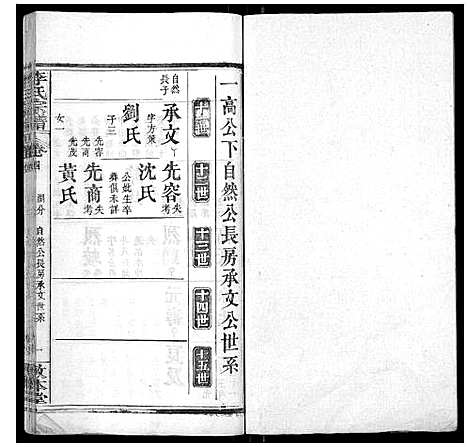 一高公下自然公長房承文公世系
十二世
十三世
十四世
十五世
自然長子
承文
字方策
劉氏
子三
先容
先商
先茂
女一
先容 失考
沈氏
公妣生卒葬俱未詳
先商 失考
黃氏
李氏宗譜
卷四
自然公長房承文世系
一
敦本堂